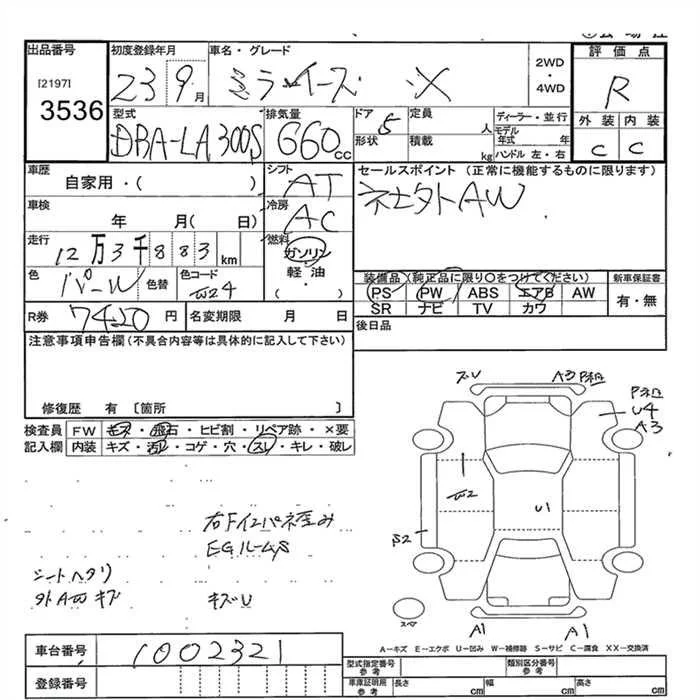 出品番号 初度登録年月 車名・グレード 2WD ・ 4WD 評価点
[2197] 3536 23 9月 ミライース X R
型式 排気量 ドア 定員 人 ディーラー・並行 外装 内装
DBA-LA300S 660cc 5 形状 積載 kg モデル年式 年 ハンドル 左・右 C C
車歴 自家用・( ) シフト AT セールスポイント (正常に機能するものに限ります)
車検 年 月( 日) 冷房 AC 社外AW
走行 12万3千883km 燃料 ガソリン・軽油・( )
色 パール 色替 色コード W24
装備品 (純正品に限り○をつけてください) 新車保証書
PS PW ABS エアB AW 有・無
SR ナビ TV カワ
R券 7420円 名変期限 月 日 後日品
注意事項申告欄(不具合内容等は具体的に記入して下さい)
修復歴 有 〔箇所 〕
検査員 FW キズ・飛石・ヒビ割・リペア跡・×要
記入欄 内装 キズ・汚レ・コゲ・穴・スレ・キレ・破レ
ズU A3 P相
P相
U4
A3
W2
U1
S2
右Fインパネ歪み
EGルームS
シートヘタリ
外AWキズ キズU
スペア
A1 A1
車台番号 1002321
A-キズ E-エクボ U-凹み W-補修跡 S-サビ C-腐食 XX-交換済
型式指定番号 参考 類別区分番号 参考
登録番号 車庫証明用 参考 長さ cm 幅 cm 高さ cm